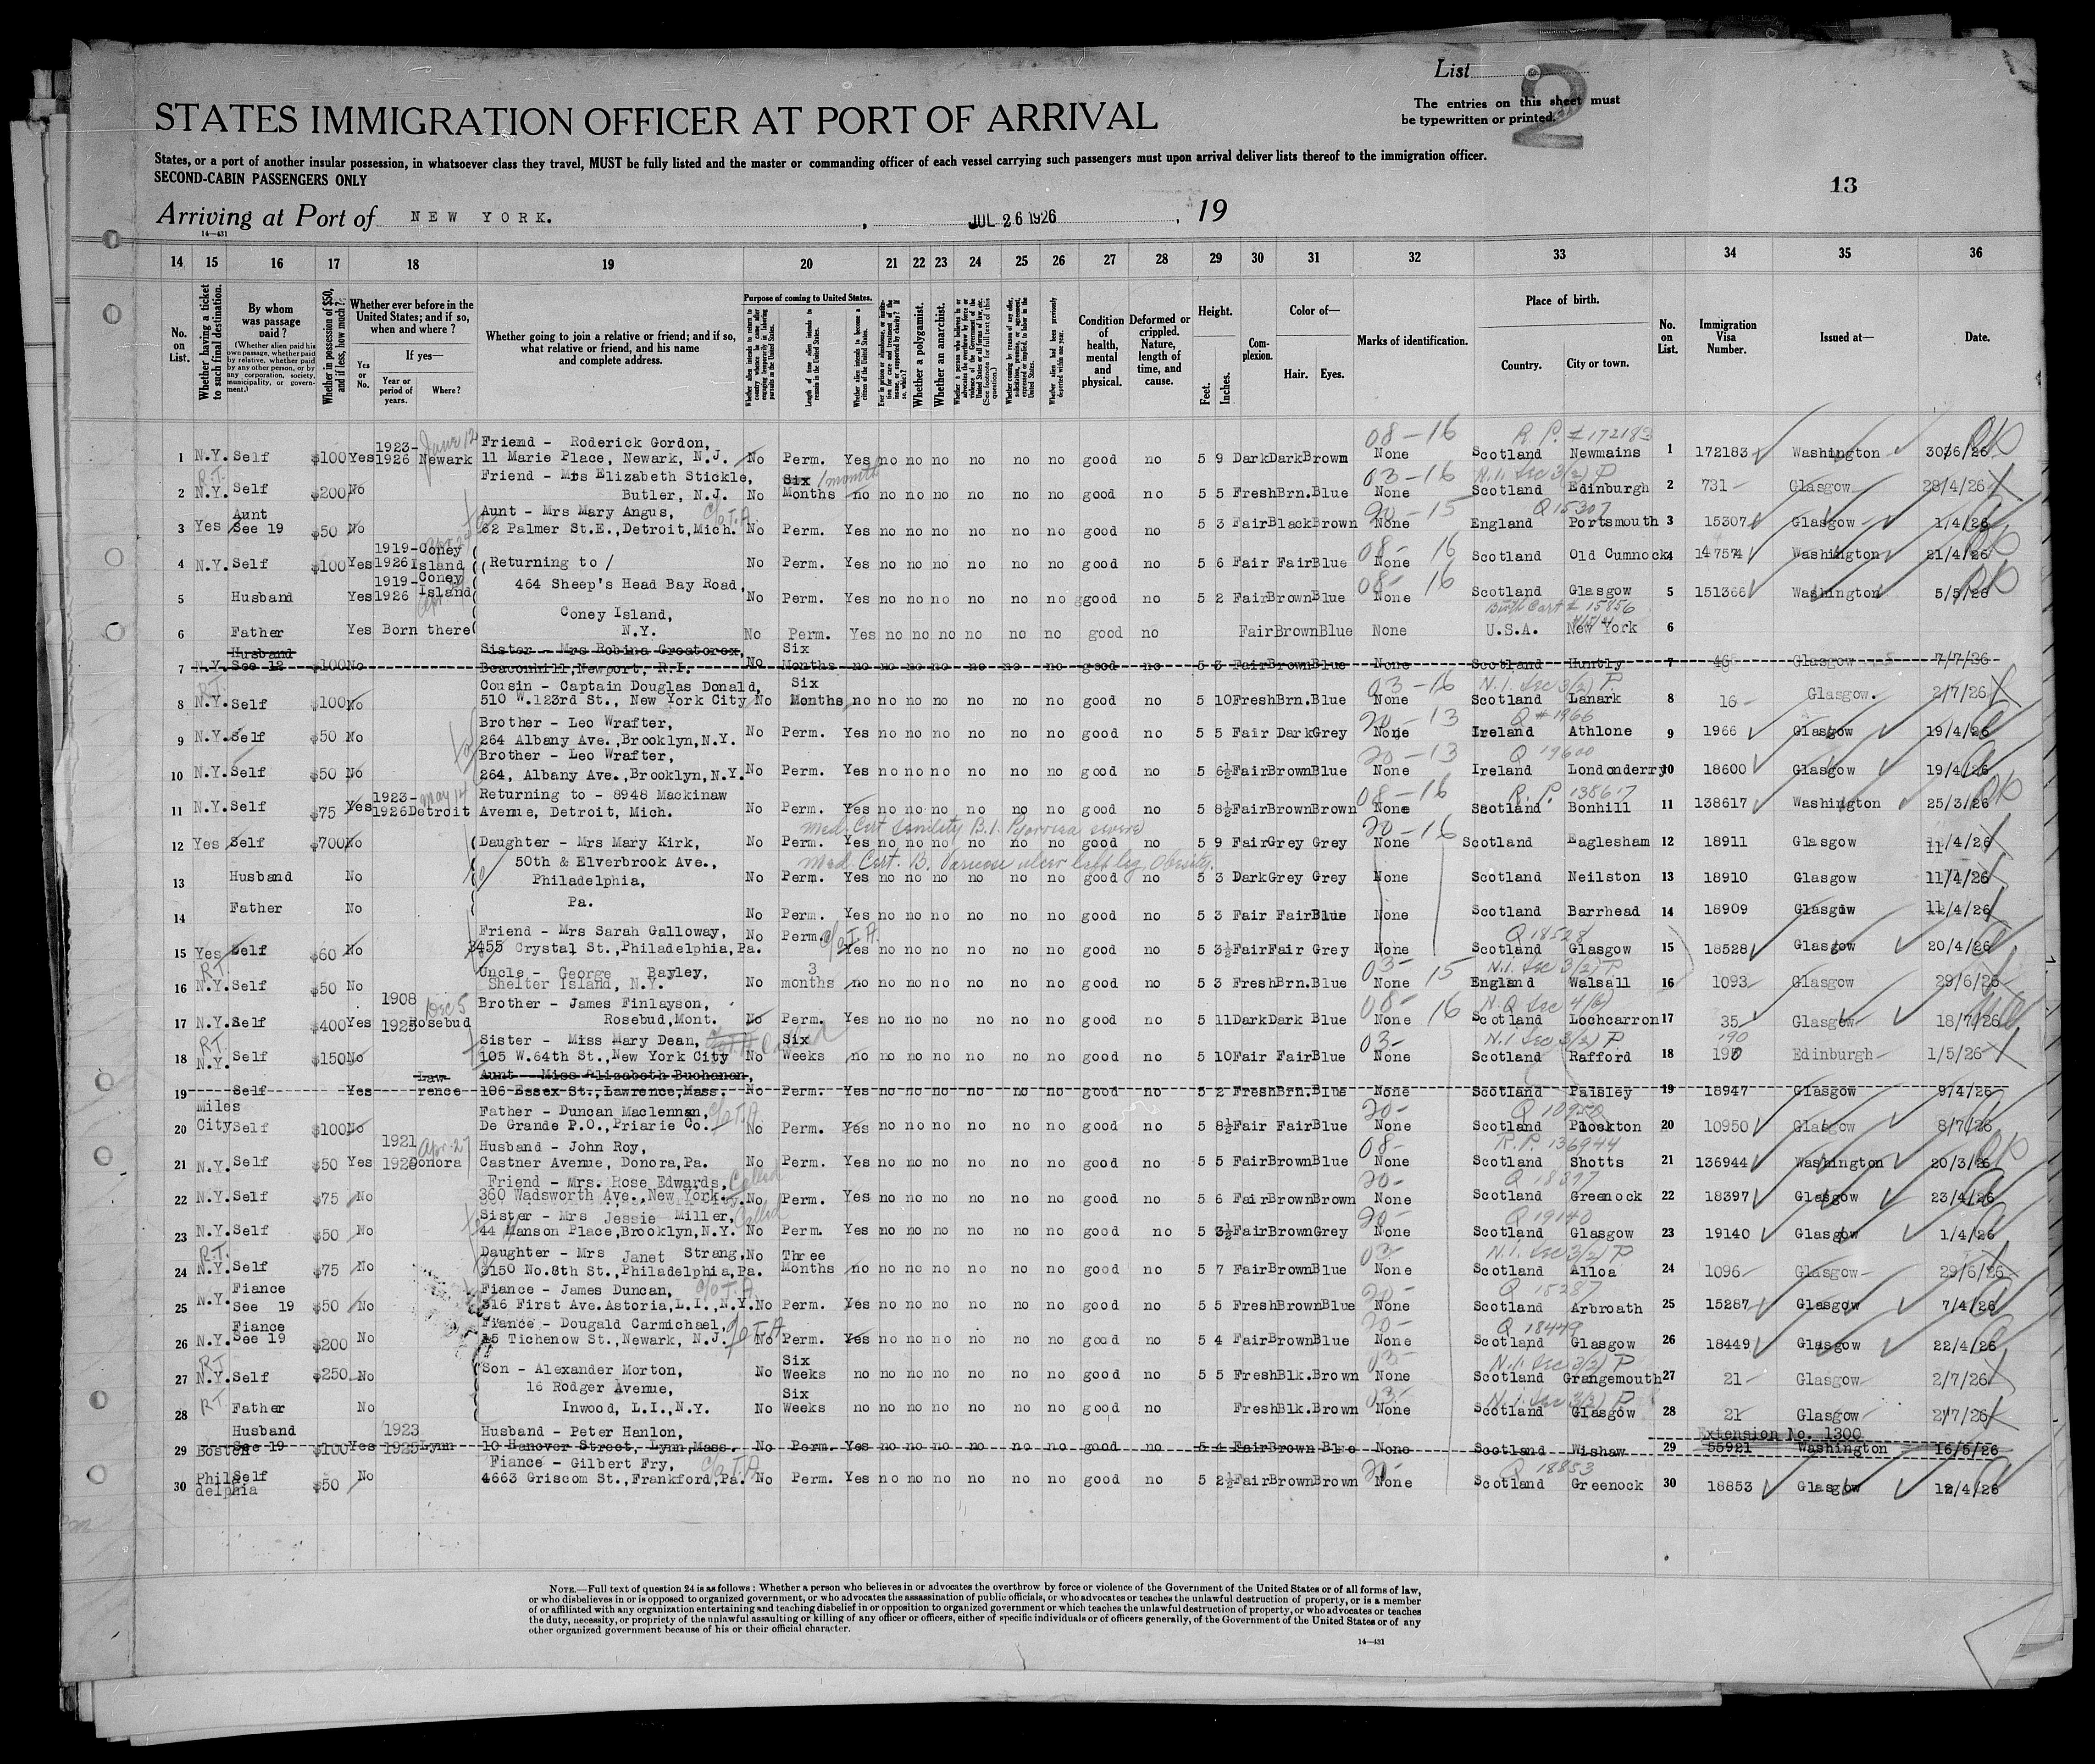 List
2
The entries on this sheet must
be typewritten or printed.
STATES IMMIGRATION OFFICER AT PORT OF ARRIVAL
States, or a port of another insular possession, in whatsoever class they travel, MUST be fully listed and the master or commanding officer of each vessel carrying such passengers must upon arrival deliver lists thereof to the immigration officer.
SECOND-CABIN PASSENGERS ONLY
13
Arriving at Port of NEW YORK. , JUL 26 1926 , 19
14—431
14 15 16 17 18 19 20 21 22 23 24 25 26 27 28 29 30 31 32 33 34 35 36
No. on List.
Whether having a ticket to such final destination.
By whom was passage paid?
(Whether alien paid his own passage, whether paid by relative, whether paid by any other person, or by any corporation, society, municipality, or government.)
Whether in possession of $50, and if less, how much?
Whether ever before in the United States; and if so, when and where?
Yes or No.
If yes—
Year or period of years.
Where?
Whether going to join a relative or friend; and if so, what relative or friend, and his name and complete address.
Purpose of coming to United States.
Length of time alien intends to remain in the United States.
Whether alien intends to become a citizen of the United States.
Whether a polygamist.
Whether an anarchist.
Condition of health, mental and physical.
Deformed or crippled. Nature, length of time, and cause.
Height.
Feet. Inches.
Complexion.
Color of—
Hair. Eyes.
Marks of identification.
Place of birth.
Country. City or town.
No. on List.
Immigration Visa Number.
Issued at—
Date.
08-16 R.P. # 172183
1 N.Y. Self $100 Yes 1923-1926 June 12 Newark Friend - Roderick Gordon, 11 Marie Place, Newark, N.J. No Perm. Yes no no no no no no good no 5 9 Dark Dark Brown None Scotland Newmains 1 172183 Washington 30/6/26
03-16 N.I. Sec 3(2) P
2 R.T. N.Y. Self $200 No Friend - Mrs Elizabeth Stickle, Butler, N.J. No Six Months 1 month no no no no no no no good no 5 5 Fresh Brn. Blue None Scotland Edinburgh 2 731 Glasgow 28/4/26
20-15 Q 15307
3 Yes Aunt See 19 $50 No Aunt - Mrs Mary Angus, 62 Palmer St.E., Detroit, Mich. No Perm. Yes no no no no no no good no 5 3 Fair Black Brown None England Portsmouth 3 15307 Glasgow 1/4/26
08-16
4 N.Y. Self $100 Yes 1919-1926 Coney Island (Returning to / No Perm. Yes no no no no no no good no 5 6 Fair Fair Blue None Scotland Old Cumnock 4 14757 Washington 21/4/26
08-16
5 Husband Yes 1919-1926 Coney Island 464 Sheep's Head Bay Road, No Perm. Yes no no no no no no good no 5 2 Fair Brown Blue None Scotland Glasgow 5 151366 Washington 5/5/26
Birth Cert # 15856
6 Father Yes Born there Coney Island, N.Y. No Perm. Yes no no no no no no good no Fair Brown Blue None U.S.A. New York 6
7 N.Y. Husband See 12 $100 No Sister - Mrs Robina Greatorex, Beaconhill, Newport, R.I. No Six Months no no no no no no no good no 5 3 Fair Brown Blue None Scotland Huntly 7 Glasgow 7/7/26
03-16 N.I. Sec 3(2) P.
8 R.T. N.Y. Self $100 No Cousin - Captain Douglas Donald, 510 W.123rd St., New York City No Six Months no no no no no no no good no 5 10 Fresh Brn. Blue None Scotland Lanark 8 16 Glasgow. 2/7/26
20-13 Q # 1966
9 N.Y. Self $50 No Brother - Leo Wrafter, 264 Albany Ave., Brooklyn, N.Y. No Perm. Yes no no no no no no good no 5 5 Fair Dark Grey None Ireland Athlone 9 1966 Glasgow 19/4/26
20-13 Q 19600
10 N.Y. Self $50 No Brother - Leo Wrafter, 264, Albany Ave., Brooklyn, N.Y. No Perm. Yes no no no no no no good no 5 6½ Fair Brown Blue None Ireland Londonderry 10 18600 Glasgow 19/4/26
08-16 R.P. 138617
11 N.Y. Self $75 Yes 1923-1926 May 14 Detroit Returning to - 8948 Mackinaw Avenue, Detroit, Mich. No Perm. Yes no no no no no no good no 5 8½ Fair Brown Brown None Scotland Bonhill 11 138617 Washington 25/3/26
Med. Cert Senility B.1. Pyorrhea severe 20-16
12 Yes Self $700 No Daughter - Mrs Mary Kirk, No Perm. Yes no no no no no no good no 5 9 Fair Grey Grey None Scotland Eaglesham 12 18911 Glasgow 11/4/26
Med. Cert. B. Varicose ulcer left leg, Obesity.
13 Husband No 50th & Elverbrook Ave., Philadelphia, No Perm. Yes no no no no no no good no 5 3 Dark Grey Grey None Scotland Neilston 13 18910 Glasgow 11/4/26
14 Father No Pa. No Perm. Yes no no no no no no good no 5 3 Fair Fair Blue None Scotland Barrhead 14 18909 Glasgow 11/4/26
Q 18528
15 Yes Self $60 No Friend - Mrs Sarah Galloway, 3455 Crystal St., Philadelphia, Pa. No Perm. Yes no no no no no no good no 5 3½ Fair Fair Grey None Scotland Glasgow 15 18528 Glasgow 20/4/26
03-15 N.I. Sec 3(2) P.
16 R.T. N.Y. Self $50 No Uncle - George Bayley, Shelter Island, N.Y. No 3 months no no no no no no no good no 5 3 Fresh Brn. Blue None England Walsall 16 1093 Glasgow 29/6/26
08-16 N.Q Sec 4(b)
17 N.Y. Self $400 Yes 1908 1925 Dec 5 Rosebud Brother - James Finlayson, Rosebud, Mont. No Perm. Yes no no no no no no good no 5 11 Dark Dark Blue None Scotland Lochcarron 17 35 Glasgow 18/7/26
03- N.I Sec 3(2) P 190
18 R.T. N.Y. Self $150 No Sister - Miss Mary Dean, 105 W.64th St., New York City No Six Weeks no no no no no no no good no 5 10 Fair Fair Blue None Scotland Rafford 18 190 Edinburgh 1/5/26
19 Self Yes Lawrence Aunt - Miss Elizabeth Buchanan, 106 Essex St., Lawrence, Mass. No Perm. Yes no no no no no no good no 5 2 Fresh Brn. Blue None Scotland Paisley 19 18947 Glasgow 9/4/26
20- Q 10950
20 Miles City Self $100 No Father - Duncan Maclennan, De Grande P.O., Priarie Co. No Perm. Yes no no no no no no good no 5 8½ Fair Fair Blue None Scotland Plockton 20 10950 Glasgow 8/7/26
08- R.P. 136944
21 N.Y. Self $50 Yes 1921 1926 Apr. 27 Donora Husband - John Roy, Castner Avenue, Donora, Pa. No Perm. Yes no no no no no no good no 5 5 Fair Brown Blue None Scotland Shotts 21 136944 Washington 20/3/26
20- Q 18397
22 N.Y. Self $75 No Friend - Mrs. Rose Edwards, 360 Wadsworth Ave., New York City. No Perm. Yes no no no no no no good no 5 6 Fair Brown Brown None Scotland Greenock 22 18397 Glasgow 23/4/26
20- Q 19140
23 N.Y. Self $50 No Sister - Mrs Jessie Miller, 44 Hanson Place, Brooklyn, N.Y. No Perm. Yes no no no no no no good no 5 3½ Fair Brown Grey None Scotland Glasgow 23 19140 Glasgow 1/4/26
03- N.I. Sec 3(2) P
24 R.T. N.Y. Self $75 No Daughter - Mrs Janet Strang, 3150 No.8th St., Philadelphia, Pa. No Three Months no no no no no no no good no 5 7 Fair Brown Blue None Scotland Alloa 24 1096 Glasgow 29/6/26
20- Q 15287
25 N.Y. Fiance See 19 $50 No Fiance - James Duncan, 316 First Ave. Astoria, L.I., N.Y. No Perm. Yes no no no no no no good no 5 5 Fresh Brown Blue None Scotland Arbroath 25 15287 Glasgow 7/4/26
20- Q 18449
26 N.Y. Fiance See 19 $200 No Fiance - Dougald Carmichael, 15 Tichenow St., Newark, N.J. No Perm. Yes no no no no no no good no 5 4 Fair Brown Blue None Scotland Glasgow 26 18449 Glasgow 22/4/26
03- N.I. Sec 3(2) P
27 R.T. N.Y. Self $250 No Son - Alexander Morton, 16 Rodger Avenue, No Six Weeks no no no no no no no good no 5 5 Fresh Blk. Brown None Scotland Grangemouth 27 21 Glasgow 2/7/26
03- N.I. Sec 3(2) P
28 R.T. Father No Inwood, L.I., N.Y. No Six Weeks no no no no no no no good no Fresh Blk. Brown None Scotland Glasgow 28 21 Glasgow 2/7/26
Extension No. 1300
29 Boston Husband See 19 $100 Yes 1923 1925 Lynn Husband - Peter Hanlon, 10 Hanover Street, Lynn, Mass. No Perm. Yes no no no no no no good no 5 4 Fair Brown Blue None Scotland Wishaw 29 55921 Washington 16/5/26
20- Q 18853
30 Philadelphia Self $50 No Fiance - Gilbert Fry, 4663 Griscom St., Frankford, Pa. No Perm. Yes no no no no no no good no 5 2½ Fair Brown Brown None Scotland Greenock 30 18853 Glasgow 12/4/26
NOTE.—Full text of question 24 is as follows: Whether a person who believes in or advocates the overthrow by force or violence of the Government of the United States or of all forms of law,
or who disbelieves in or is opposed to organized government, or who advocates the assassination of public officials, or who advocates or teaches the unlawful destruction of property, or is a member
of or affiliated with any organization entertaining and teaching disbelief in or opposition to organized government or which teaches the unlawful destruction of property, or who advocates or teaches
the duty, necessity, or propriety of the unlawful assaulting or killing of any officer or officers, either of specific individuals or of officers generally, of the Government of the United States or of any
other organized government because of his or their official character.
14—431